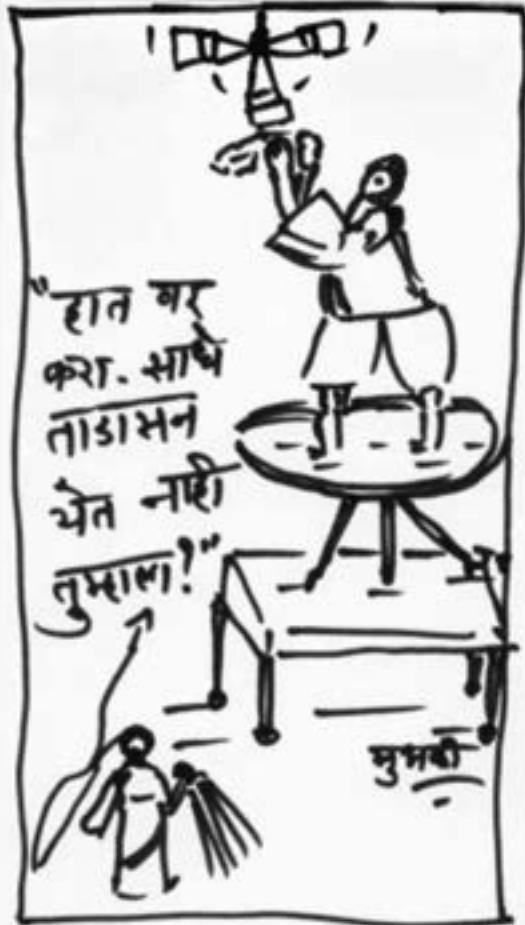 "हात वर
करा. साधे
ताडासन
येत नाही
तुम्हाला?"